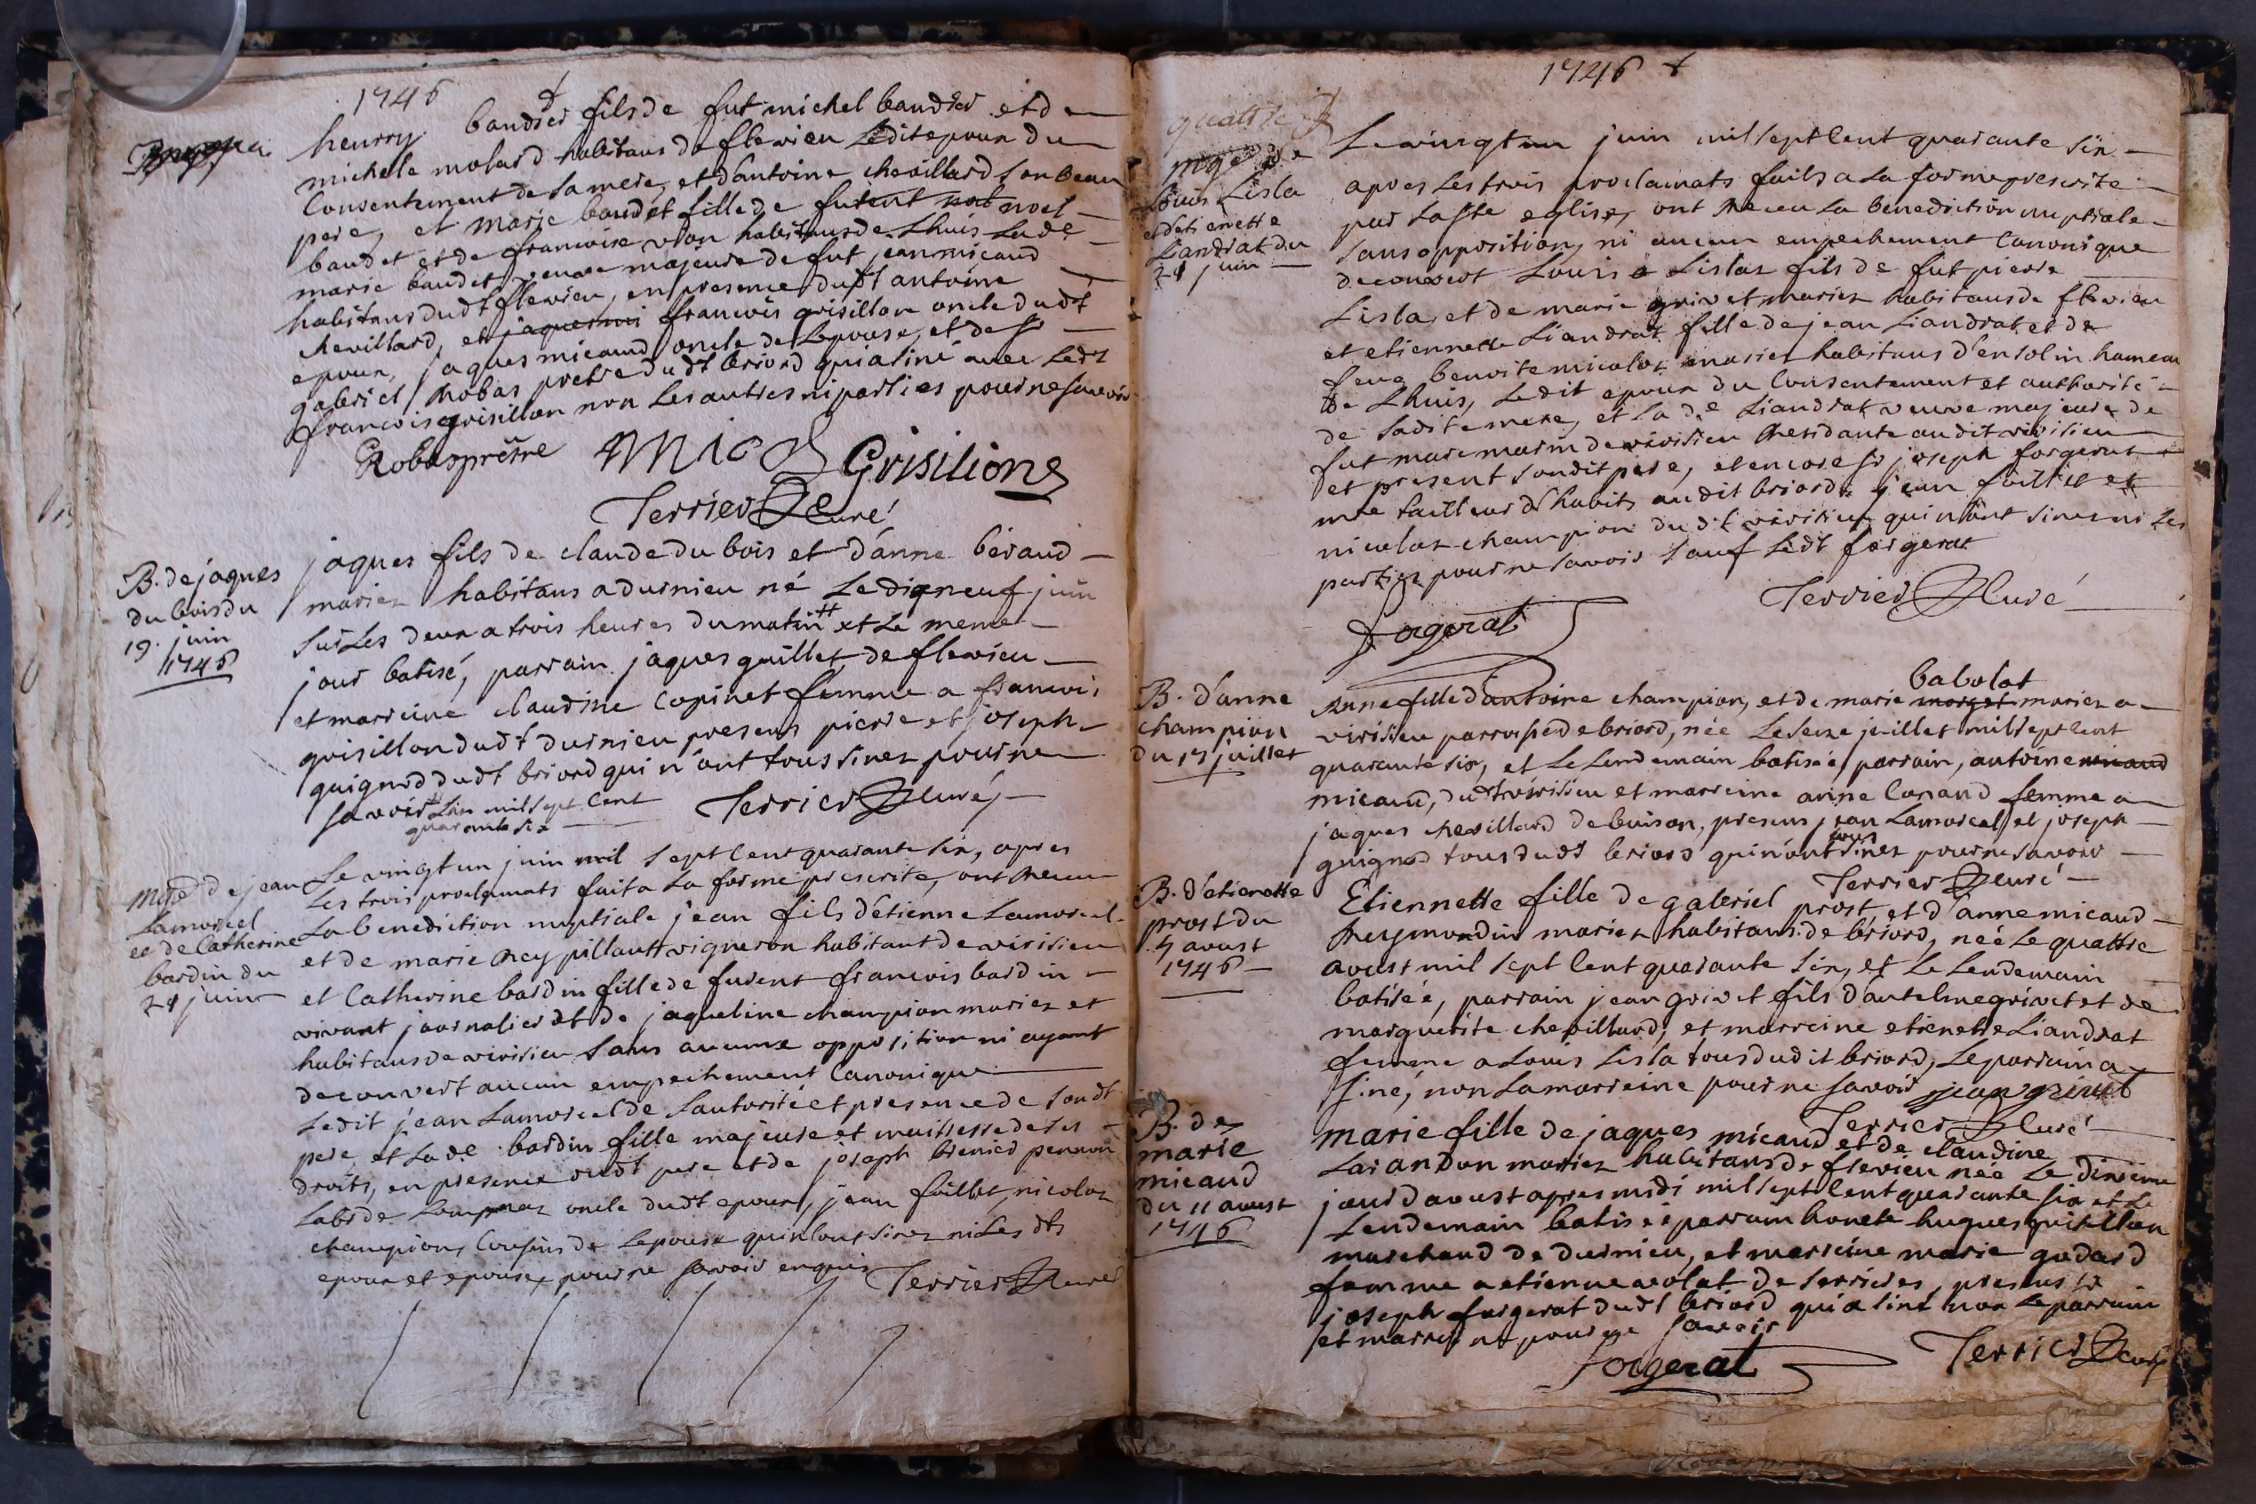 1746
henrry baudier fils de fut michel baudier et de
michele molard habitans de flevieu ledit epoux du
Consentement de sa mere, et d'antoine chevillard son beau
pere, et marie baudet fille de noel
baudet et de francoise vion habitans de Lhuis lade
marie baudet veuve majeure de fut jean micaud
habitans dudt flevieu, en presence dudt antoine
chevillard, et francois grisillon oncle dudt
epoux, jaques micaud oncle de Lepouse, et de sr
gabriel Robas pretre dudt briord qui a siné avec Ledt
francois grisillon non Les autres ni parties pour ne savoir
Robas prêtre Grisilione
Terrier Curé
B. de jaques
du bois du
19. juin
1746
jaques fils de claude du bois et d'anne béraud
mariez habitans a durnieu né Le dixneuf juin
sur Les deux a trois heures du matin # et Le meme
jour batisé, parrain jaques guillet de flevieu
et marreine claudine Copinet femme a francois
grisillon dudt durnieu presens pierre et joseph
guignod dudt briord qui n'ont tous sinez pour ne
savoir # Lan mil sept Cent
quarante six
Terrier Curé
mge de jean
Lamorcel
et de Catherine
bardin du
21 juin
Le vingt un juin mil sept Cent quarante six, apres
Les trois proclamats fait a La forme prescrite, ont Receu
La benediction nuptiale jean fils d'étienne Lamorcel
et de marie Rey pillaut vigneron habitant de virisieu
et Catherine bardin fille de furent francois bardin
vivant journalier et de jaqueline champion mariez et
habitans de virisieu sans aucune opposition ni ayant
decouvert aucun empechement Canonique
Ledit jean Lamorcel de Lautorité et presence de sondt
pere, et Lade bardin fille majeure et maitresse de ses
droits, en presence dudt pere et de joseph brenier
oncle dudt epoux, jean faillet, nicolas
champion, Cousins de Lepouse qui n'ont sinez ni Les dts
epoux et epouse, pour ne savoir enquis
Terrier Curé
1746
mge de
Louis Lisla
et d'etienette
Liandrat du
21 juin
Le vingt un juin mil sept Cent quarante six
apres Les trois proclamats faits a La forme prescrite
par La Ste eglise, ont Receu La benediction nuptiale
sans opposition, ni aucun empechement Canonique
decouvert Louis Lislaz fils de fut pierre
Lisla, et de marie grivet mariez habitans de flevieu
et etiennette Liandrat fille de jean Liandrat et de
feue benoite micolot mariez habitans d'ensolin hameau
de Lhuis, Ledit epoux du Consentement et authorité
de sadite mere, et La de Liandrat veuve majeure de
fut marc marin de virisieu Residante audit virisieu
et present sondit pere, et encore sr joseph forgerat
mre tailleur d'habits audit briord, jean faillet et
nicolas champion dudt virisieu qui n'ont sinez ni Les
parties pour ne savoir sauf Ledt forgerat
Forgerat
Terrier Curé
B. d'anne
champion
du 17 juillet
babolat
Anne fille d'antoine champion, et de marie mariez a
virisieu parroisse de briord, née Le seize juillet mil sept Cent
quarante six, et Le Lendemain batisée parrain, antoine
micaud, dudt virisieu et marreine anne Conand femme a
jaques chevillard de buison, presens jean Lamorcel, et joseph
guignod tous dudt briord qui n'ont tous sinez pour ne savoir
Terrier Curé
B. d'etienette
prost du
5 avust
1746
Etiennette fille de gabriel prost et d'anne micaud
Reymondin mariez habitans de briord, née Le quattre
avust mil sept Cent quarante six, et Le Lendemain
batisée, parrain jean grivet fils d'antelme grivet et de
marguerite chevillard, et marreine etienette Liandrat
femme a Louis Lisla tous dudit briord, Le parrain a
siné, non La marreine pour ne savoir jean grivet
Terrier Curé
B. de
marie
micaud
du 11 avust
1746
marie fille de jaques micaud et de claudine
mariez habitans de flevieu née Le dixieme
jour d'avust apres midi mil sept Cent quarante six et Le
Lendemain batisée parrain honete hugues grisillon
marchand de durnieu, et marreine marie godard
femme a etienne de serrieres, presens sr
joseph forgerat dudt briord qui a siné non Le parrain
et marreine pour ne savoir
Forgerat
Terrier Curé